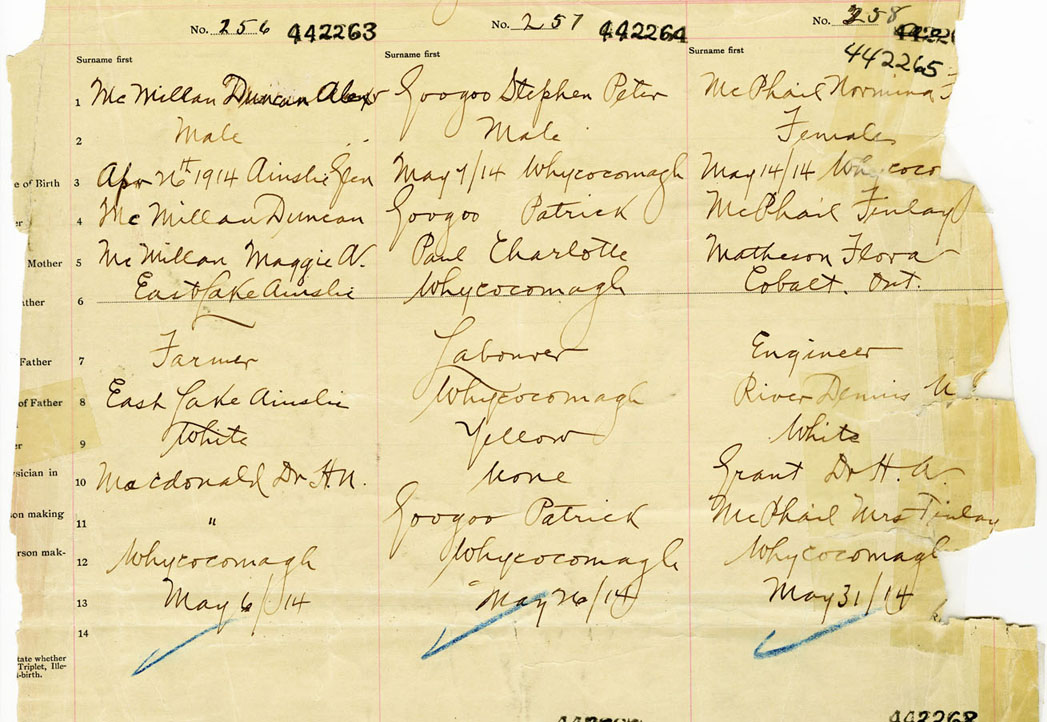 No. 256 442263 No. 257 442264 No. 258
442265
Surname first Surname first Surname first
1 McMillan Duncan Alexr Googoo Stephen Peter McPhail Normina
2 Male Male Female
e of Birth 3 Apr 26th 1914 Ainslie Glen May 7/14 Whycocomagh May 14/14 Whycoco
er 4 McMillan Duncan Googoo Patrick McPhail Finlay
Mother 5 McMillan Maggie N. Paul Charlotte Matheson Flora
ather 6 East Lake Ainslie Whycocomagh Cobalt. Ont.
Father 7 Farmer Labourer Engineer
of Father 8 East Lake Ainslie Whycocomagh River Dennis
er 9 White Yellow White
ysician in 10 Macdonald Dr H.N. None Grant Dr H.A.
on making 11 " Googoo Patrick McPhail Mrs Finlay
rson mak- 12 Whycocomagh Whycocomagh Whycocomagh
13 May 6/14 May 26/14 May 31/14
14
tate whether
Triplet, Ille-
-birth.
442268